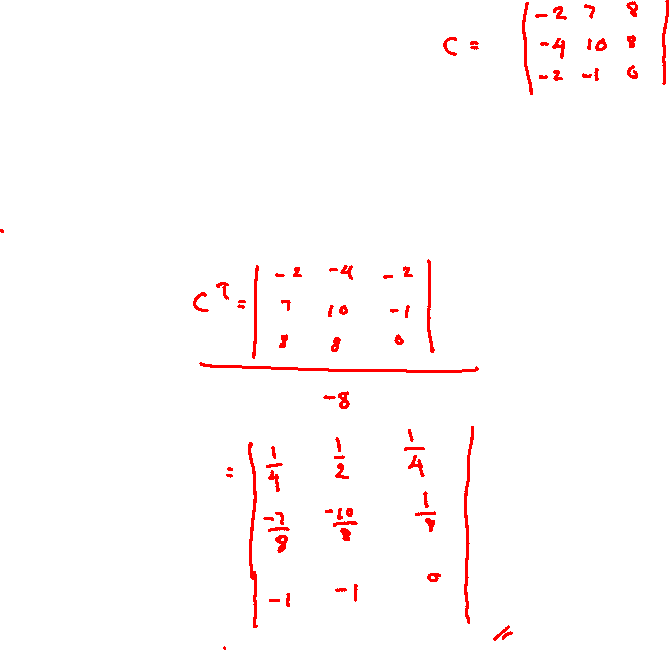 C = | -2 7 8 |
| -4 10 8 |
| -2 -1 0 |
C^T = | -2 -4 -2 |
| 7 10 -1 |
| 8 8 0 |
-8
= | 1/4 1/2 1/4 |
| -7/8 -10/8 1/8 |
| -1 -1 0 | //